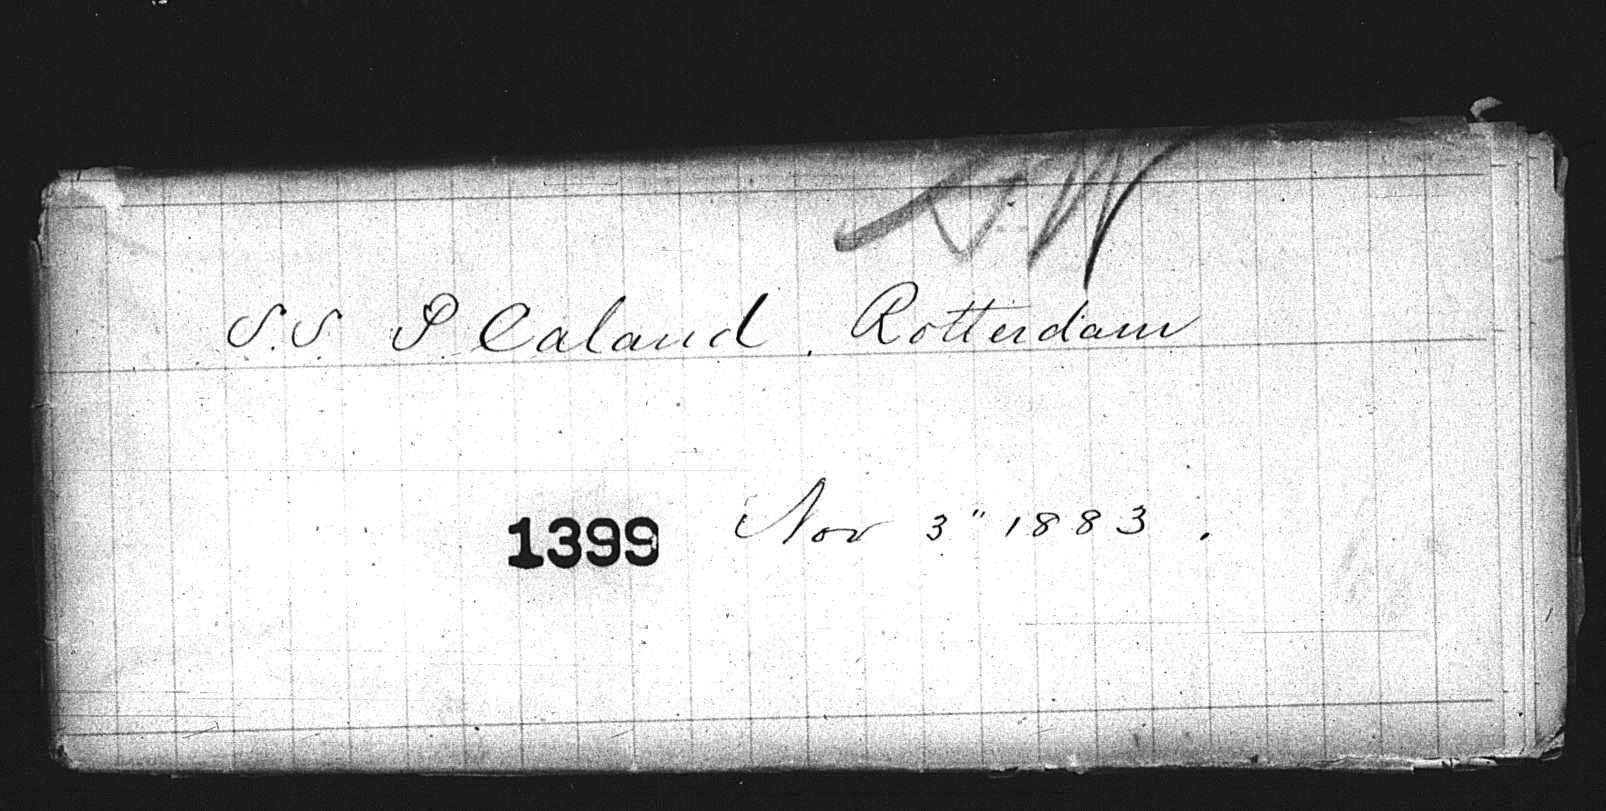 S.S. P. Caland, Rotterdam
1399 Nov 3" 1883.